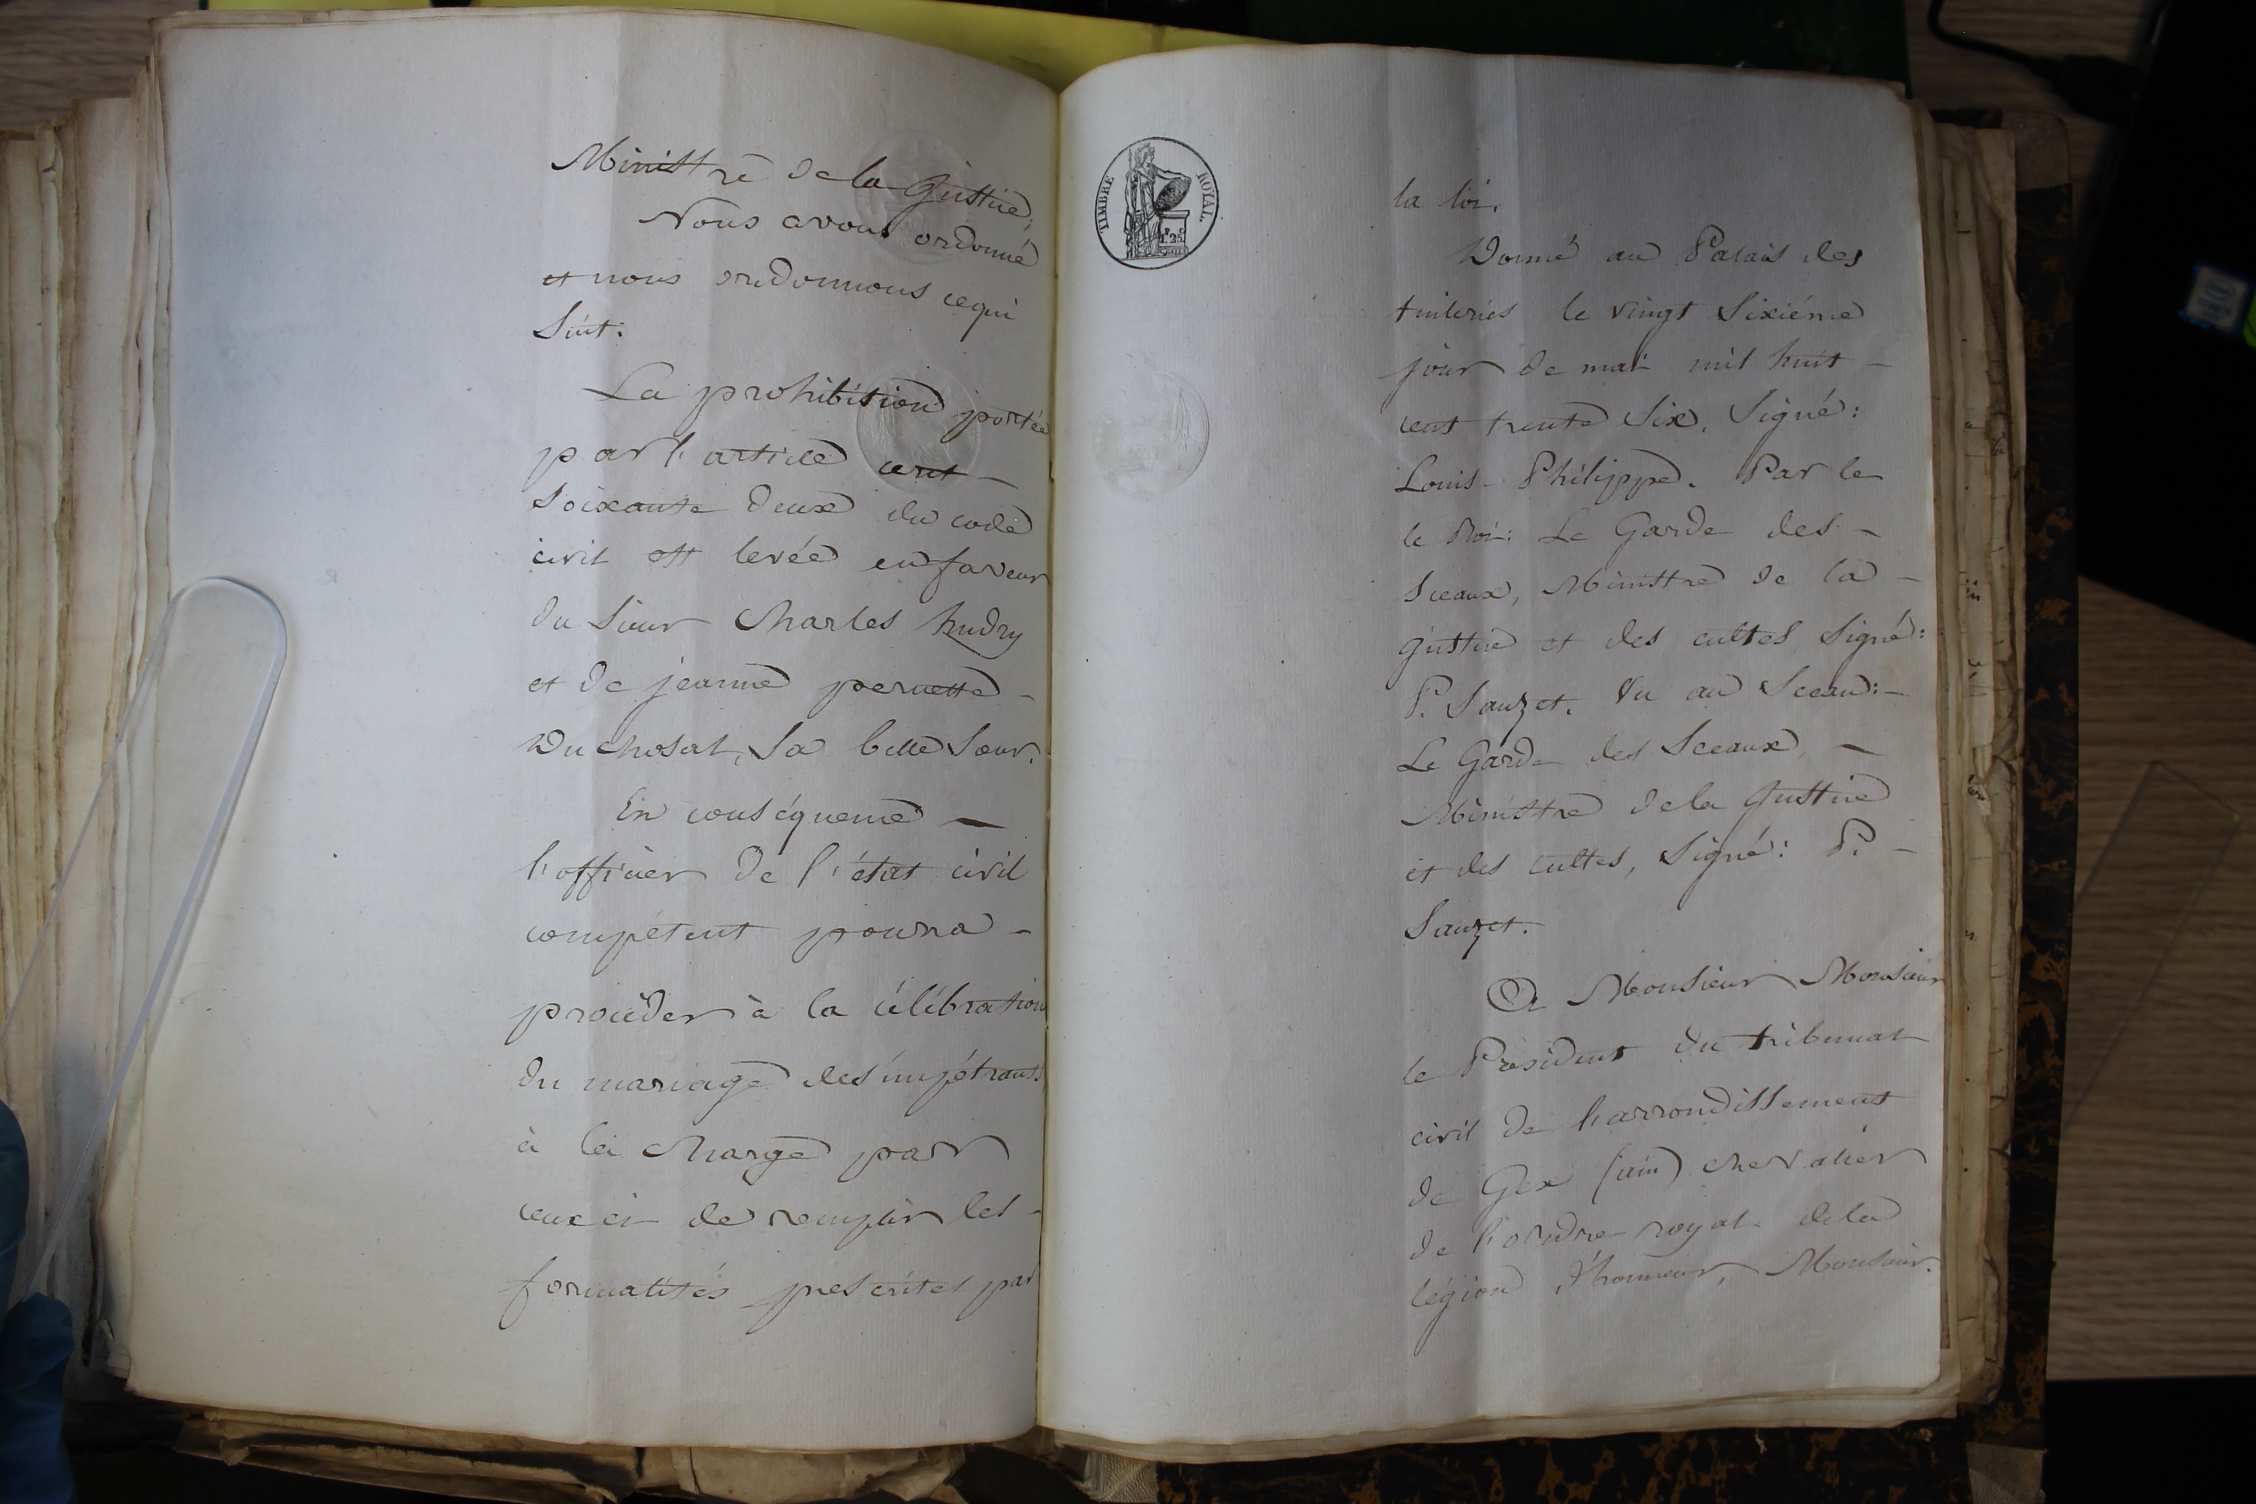 Ministre de la Justice;
Nous avons ordonné
et nous ordonnons ce qui
suit:
La prohibition portée
par l'article cent
soixante deux du code
civil est levée en faveur
du sieur Charles hudry
et de jeanne pernette -
Duchosal, sa belle sœur.
En conséquence —
l'officier de l'état civil
compétent pourra -
procéder à la célébration
du mariage des impétrants
à la charge par
ceux ci de remplir les -
formalités prescrites par
TIMBRE ROYAL
la loi.
Donné au Palais des
tuileries le vingt sixiéme
jour de mai mil huit -
cent trente six. Signé:
Louis-Philippe. Par le
le Roi: Le Garde des -
Sceaux, Ministre de la -
Justice et des cultes, Signé:
P. Sauzet. Vu au Sceau: -
Le Garde des Sceaux, —
Ministre de la Justice
et des cultes, Signé: P. -
Sauzet.
A Monsieur Monsieur
le Président du tribunal
civil de l'arrondissement
de Gex (ain) chevalier
de l'ordre royal de la
légion d'honneur, Monsieur.